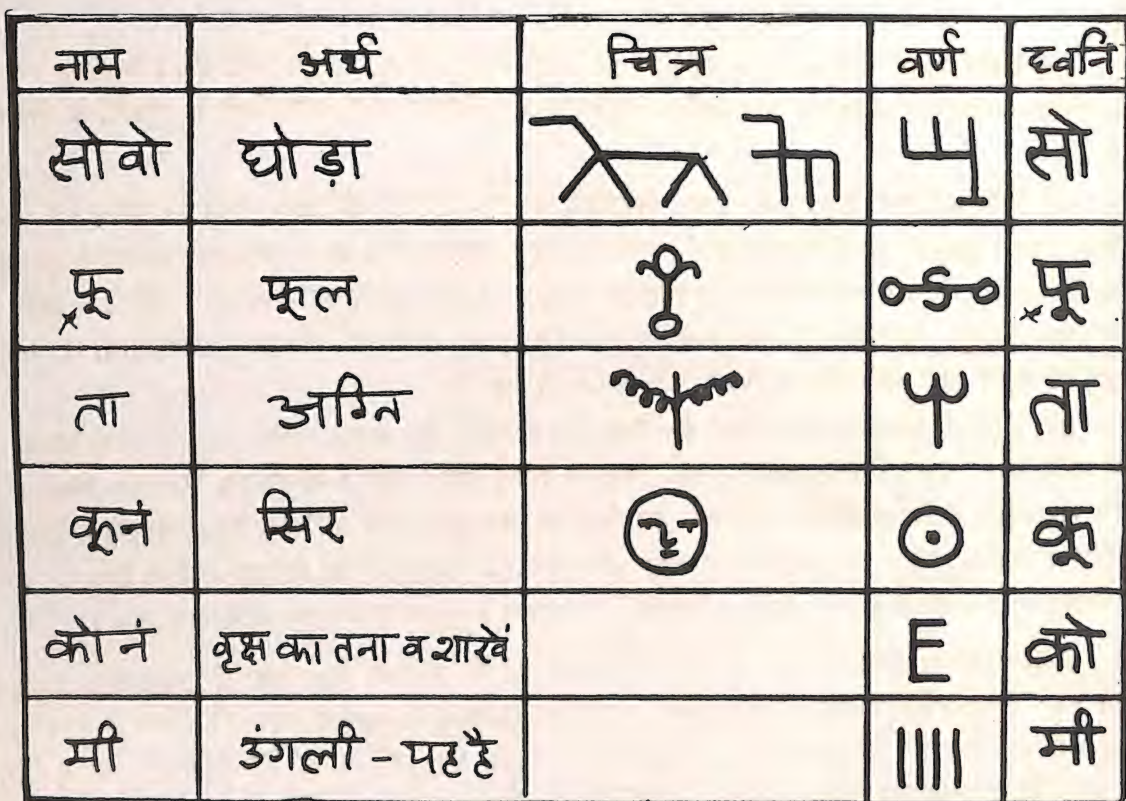 नाम अर्थ चित्र वर्ण ध्वनि
सोवो घोड़ा सो
फू फूल फू
ता अग्नि ता
कूनं सिर कू
कोनं वृक्ष का तना व शाखें को
मी उंगली - यह है मी